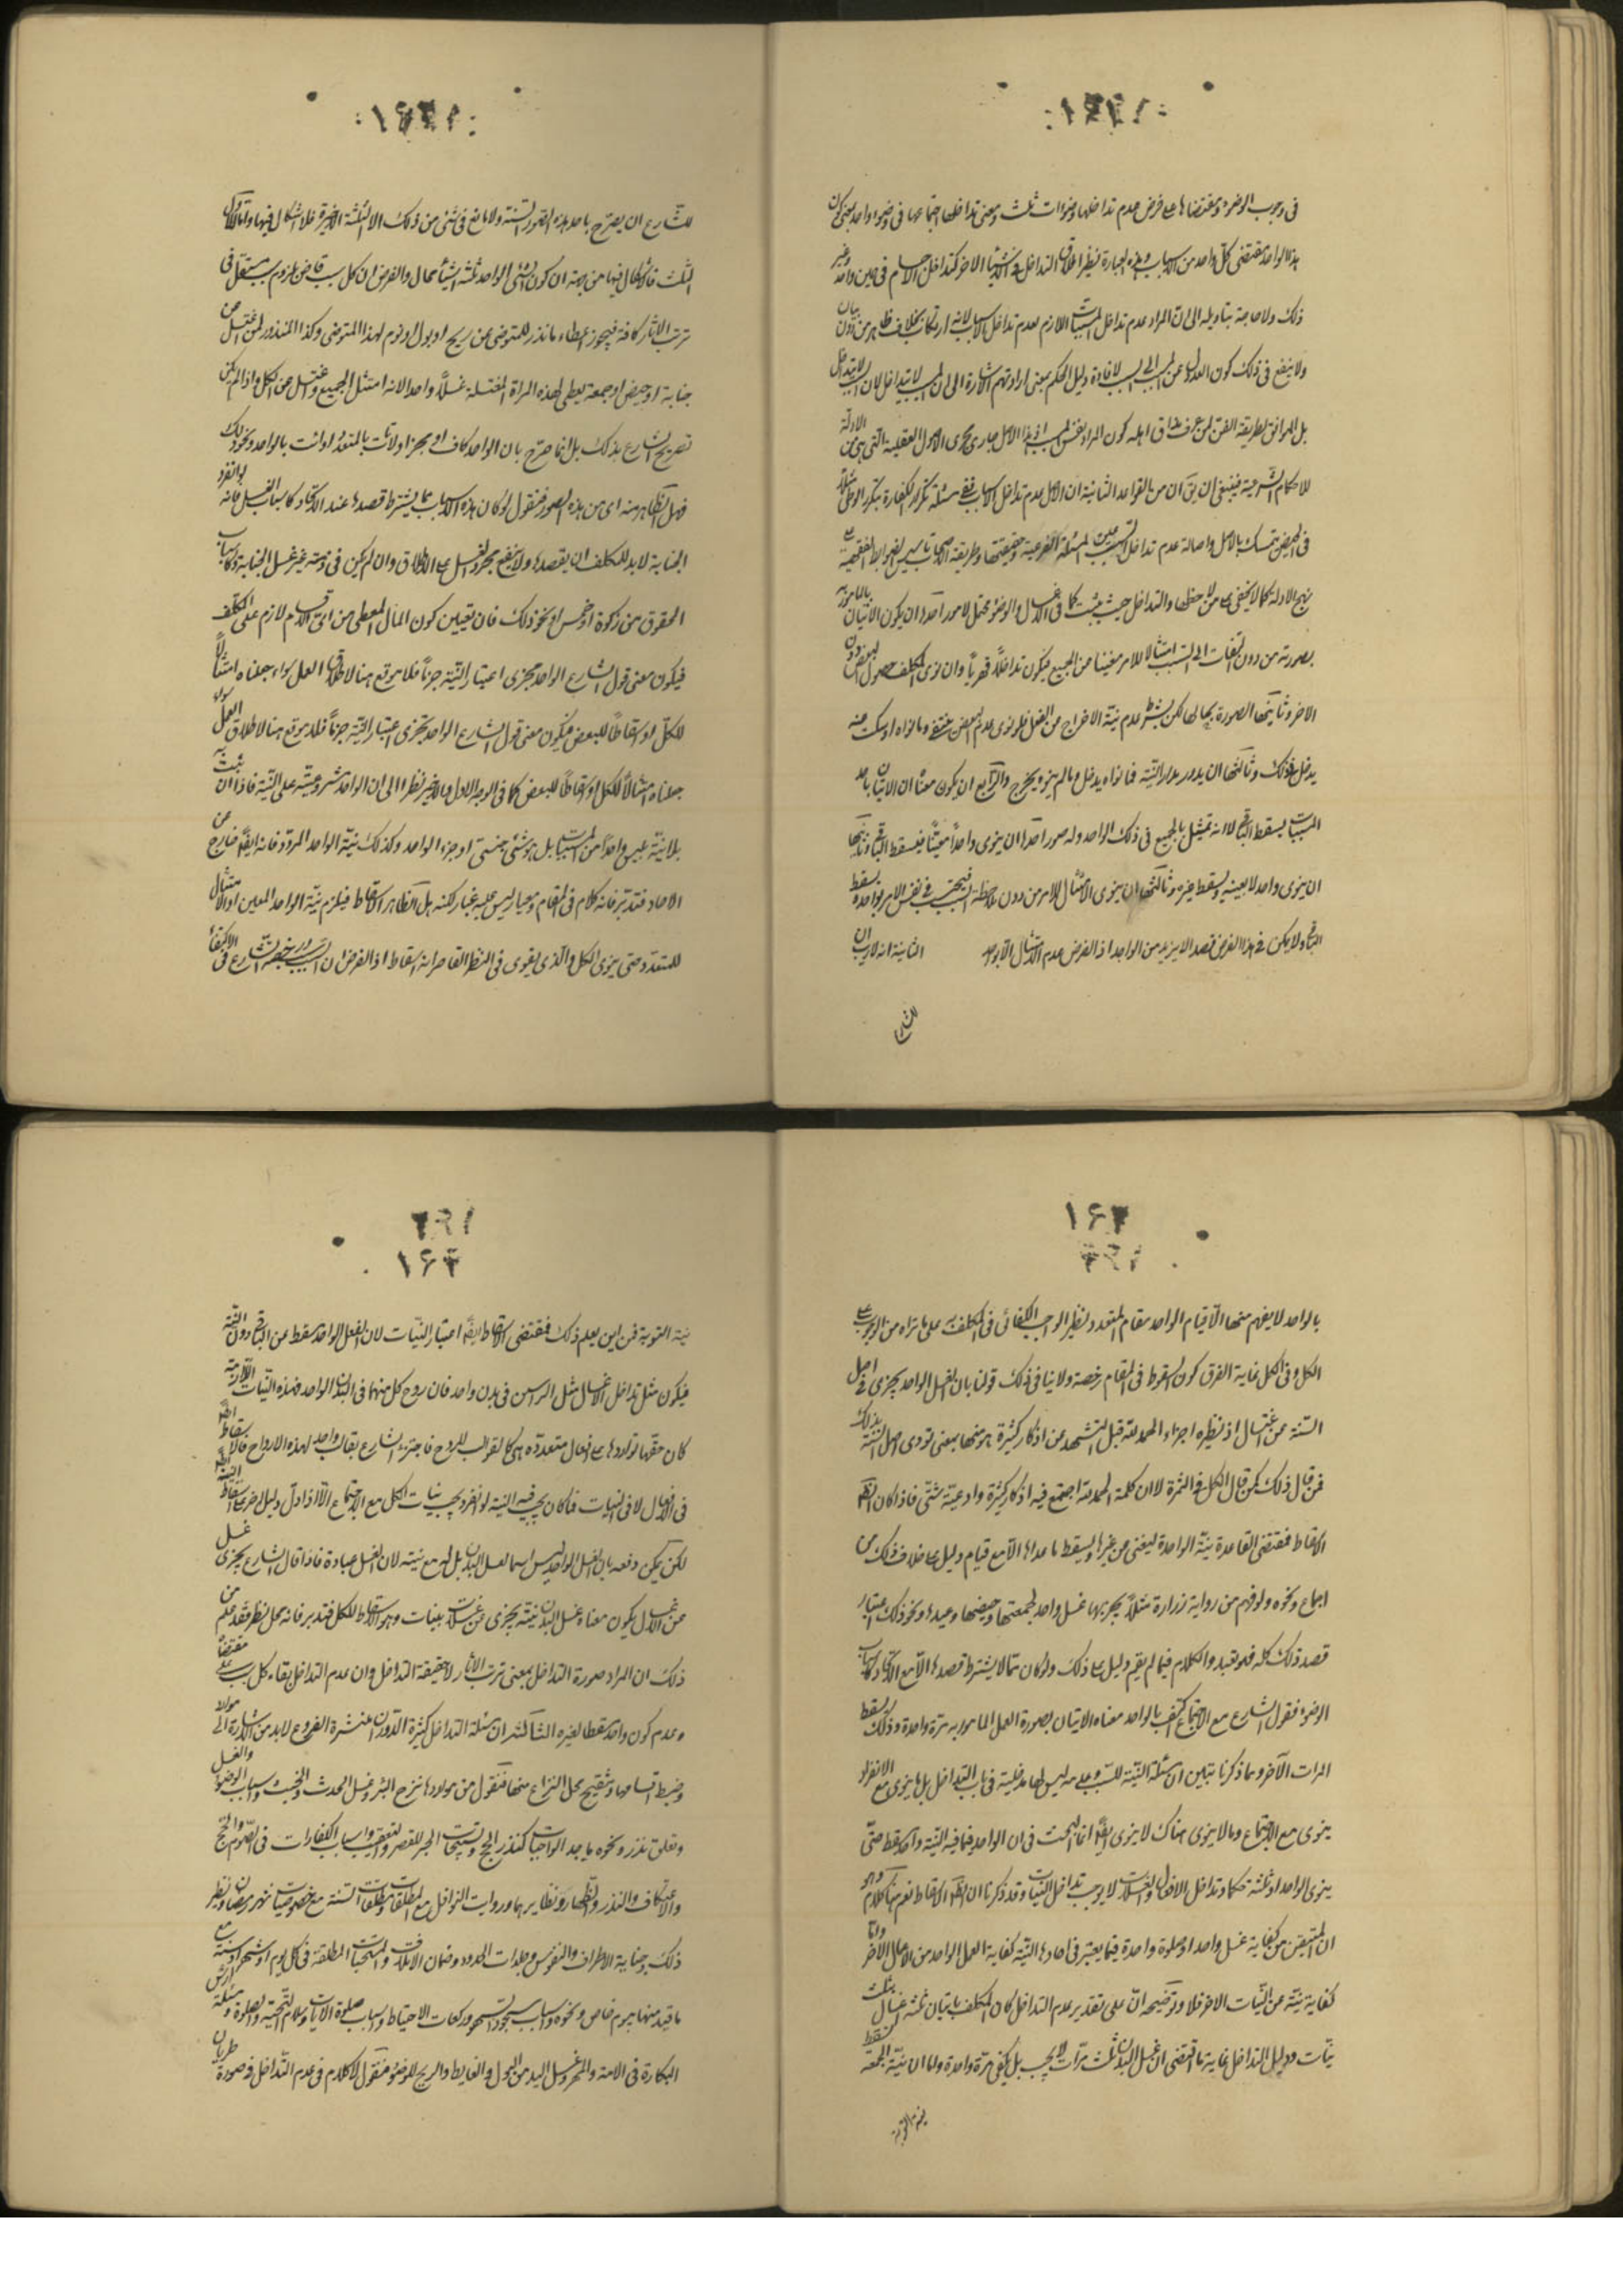 فى وجوب الوضوء ومقتضاها على فرض عدم تداخلها وضوءات ثلث ومعنى تداخلها اجتماعها فى وضوء واحد بمعنى كون
هذا الواحد مقتضى كل واحد من الاسباب وهذه العبارة نظير اطلاق التداخل فى الاشياء الاخر كتداخل الاجسام فى حيز واحد وغير
ذلك ولا حاجة بتاويله الى ان المراد عدم تداخل المسببات اللازم لعدم تداخل الاسباب لانه ارتكاب بخلاف ظاهر من دون بيان
ولا ينفع فى ذلك كون العدول عن المسبب الى السبب لافادة دليل الحكم بمعنى ارادتهم الاشارة الى ان المسبب لا يتداخل لان السبب لا يتداخل
بل الموافق لطريقة الفن لمن عرف مذاق اهله كون المراد نفس السبب اذ هذا الاصل جارى مجرى الاصول العقلية التى هى من الادلة
للاحكام الشرعية فينبغى ان يق ان من القواعد الثابتة ان الاصل عدم تداخل الاسباب ففى مسئلة تكرر الكفارة بتكرر الوطى مثلا
فى الحيض يتمسك بالاصل واصالة عدم تداخل السببين المسئلة الفرعية وحقيقتها وطريقة الاصحاب تاسيس الضوابط الفقهية على
نهج الادلة كما لا يخفى على من لاحظها والتداخل حيث يثبت كما فى الاغسال والوضوء محتمل لامور احدها ان يكون الاتيان بالمامور به
بصورته من دون التفات الى السبب امتثالا للامر مغنيا عن الجميع فيكون تداخلا قهريا وان نوى المكلف حصول البعض دون
الاخر وثانيها الصورة بحالها لكن بشرط عدم نية الاخراج من الفعل فلو نوى عدم البعض ينتفى وما نواه او سكت عنه
يدخل فى ذلك وثالثها ان يدور مدار النية فما نواه يدخل وما لم ينو يخرج والرابع ان يكون معناه ان الاتيان باحد
المسببات يسقط الباقى لا انه تمتثل بالجميع فى ذلك الواحد وله صور احدها ان ينوى واحدا معينا فيسقط الباقى وثانيها
ان ينوى واحدا لا بعينه ويسقط غيره وثالثها ان ينوى الامتثال للامر من دون ملاحظة السبب فيحتسب فى نفس الامر بواحد ويسقط
الباقى ولا يمكن فى هذا الفرض قصد الازيد من الواحد اذ الفرض عدم الامتثال الا بواحد الثانية انه لا ريب ان
للشارع
للشارع ان يصرح باحد هذه الصور الستة ولا مانع فى شئ من ذلك الا الثلثة الاخيرة فلا اشكال فيها واما الاول
الثلث فالاشكال فيها من جهة ان كون الشئ الواحد ثلثة اشياء محال والفرض ان كل سبب قاض بلزوم مستقل فى
ترتب الاثار كافة فيجوز اعطاء ما نذر للمتوضى عن ريح او بول او نوم لهذا المتوضى وكذا المنذور لمن اغتسل عن
جنابة او حيض او جمعة يعطى لهذه المراة المغتسلة غسلا واحدا لانه امتثل الجميع واغتسل عن الكل واذا لم يكن
تصريح الشارع بذلك بل انما صرح بان الواحد كاف او مجز او لا تات بالمتعدد او ائت بالواحد ونحو ذلك
فهل الظاهر منه اى من هذه الصور فنقول لو كان هذه الاسباب مما يشترط قصدها عند الانفراد كاسباب الغسل فانه لو انفرد
الجنابة لا بد للمكلف ان يقصدها ولا ينفع مجرد الغسل على الاطلاق وان لم يكن فى ذمته غير غسل الجنابة وكاسباب
الحقوق من زكوة او خمس او نحو ذلك فان تعيين كون المال المعطى من اى الاقسام لازم على المكلف
فيكون معنى قول الشارع الواحد يجزى اعتبار النية جزما فلا موقع هنا لاطلاق العمل سواء جعلناه امتثالا
للكل او اسقاطا للبعض فيكون معنى قول الشارع الواحد يجزى اعتبار النية جزما فلا موقع هنا لاطلاق العمل سواء
جعلناه امتثالا للكل او اسقاطا للبعض كما فى الوجه الاول والاخير نظرا الى ان الواحد مشروعيته على النية فاذا ات به
بلا نية ليس واحدا من المسببات بل هو شئ اجنبى او جزء الواحد وكذلك نية الواحد المردد فانه ايضا خارج عن
الاحاد فتدبر فانه كلام فى المقام ومعيار ليس عليه غبار لكنه بل الظاهر الاسقاط فيلزم نية الواحد المعين او الامتثال
للمتعدد حتى ينوى الكل والذى يقوى فى النظر القاصر انه اسقاط اذ الفرض ان السبب ورخصة الشارع فى الاكتفاء
١٦٢
بالواحد لا يفهم منها الا قيام الواحد مقام المتعدد نظير الواجب الكفائى فى المكلف به على ما تراه من الوجوب على
الكل وفى الكل غاية الفرق كون السقوط فى المقام رخصة ولا ينافى ذلك قولنا بان الغسل الواحد يجزى فى اصل
السنة عن اغتسال اذ نظيره اجزاء الحمد لله قبل التشهد عن اذكار كثيرة هو منها بمعنى تودى اصل السنة بذلك
فمن قال ذلك كمن قال الكل فى الثمرة لا ان كلمة الحمد لله اجتمع فيه اذكار كثيرة وادعية شتى فاذا كان الظاهر
الاسقاط فمقتضى القاعدة نية الواحدة ليغنى عن غيرها ويسقط ما عداها الا مع قيام دليل على خلاف ذلك من
اجماع ونحوه ولو فهم من رواية زرارة مثلا يجزيها غسل واحد لجمعتها وحيضها وعيدها ونحو ذلك اعتبار
قصد ذلك كله فهو تعبد والكلام فيما لم يقم دليل على ذلك ولو كان مما لا يشترط قصدها الا مع الانفراد كاسباب
الوضوء فقول الشارع مع الاجتماع اكتف بالواحد معناه الاتيان بصورة العمل المامور به مرة واحدة وذلك يسقط
المرات الاخر ومما ذكرنا تبين ان مسئلة النية للسبب وعدمه ليس لها مدخلية فى باب التداخل بل ما ينوى مع الانفراد
ينوى مع الاجتماع وما لا ينوى هناك لا ينوى ايضا انما البحث فى ان الواحد فيما فيه النية واحد سقط حتى
ينوى الواحد او ثلثة حكما وتداخل الافعال والغسلات لا يوجب تداخل النيات وقد ذكرنا ان الظاهر الاسقاط نعم هنا كلام وهو
ان المتيقن من كفاية غسل واحد او صلوة واحدة فيما يعتبر فى احادها النية كفاية العمل الواحد من الاعمال الاخر واما
كفاية نية عن النيات الاخر فلا وتوضيحه ان على تقدير عدم التداخل كان المكلف باتيان ثلثة اغسال بثلث
نيات ودليل التداخل غاية ما اقتضى ان غسل البدن ثلث مرات لا يجب بل يكفى مرة واحدة واما ان نية الجمعة تسقط
نية التوبة
١٦٢
نية التوبة فمن اين يعلم ذلك فمقتضى الاسقاط ايضا اعتبار النيات لان الفعل الواحد سقط عن الباقى دون النية
فيكون مثل تداخل الاغسال مثل الراسين فى بدن واحد فان روح كل منهما فى البدن الواحد فهذه النيات اللازمة
كان حقها تواردها على افعال متعددة هى كالقوالب للروح فاجتزء الشارع بقالب واحد لهذه الارواح فالاسقاط انما
فى الافعال لا فى النيات فما كان يجب فيه النية لو انفرد يجب نيات الكل مع الاجتماع الا اذا دل دليل اخر على اسقاط النية ايضا
لكن يمكن دفعه بان الغسل الواحد ليس اسما لغسل البدن بل له مع نيته لان الغسل عبادة فاذا قال الشارع يجزى غسل
عن اغسال يكون معناه غسل البدن بنيته يجزى عن غسلات بنيات وهو الاسقاط للكل فتدبر فانه محل نظر فقد علم من
ذلك ان المراد صورة التداخل بمعنى ترتب الاثار لا حقيقة التداخل وان عدم التداخل بقاء كل سبب على مقتضاه
وعدم كون واحد مسقطا لغيره الثالثة ان مسئلة التداخل كثيرة الدوران منتشرة الفروع لا بد من الاشارة الى موارد
وضبط اقسامها وتنقيح محل النزاع منها فنقول من مواردها نزح البئر وغسل الحدث والخبث واسباب الوضوء والغسل
وتعلق نذر ونحوه باحد الواجبات كنذر الحج وتسبيحات الجبر للقصر والتعقيب واسباب الكفارات فى الصوم والحج
والاعتكاف والنذر والظهار ونظايرها وروايت النوافل مع المطلقات ومطلقات السنة مع خصوصيات شهر رمضان ونظير
ذلك وجناية الاطراف والنفوس وجلدات الحدود وضمان الاتلاف والمستحبات المطلقة فى كل يوم او شهر او سنة مع
ما قيد منها بيوم خاص ونحوه واسباب سجود السهو وركعات الاحتياط واسباب صلوة الايات وسلام التحية والصلوة ومسئلة ارش
البكارة فى الامة والمهر وغسل اليد من البول والغايط والريح للوضوء فنقول لا كلام فى عدم التداخل فى صورة طريان